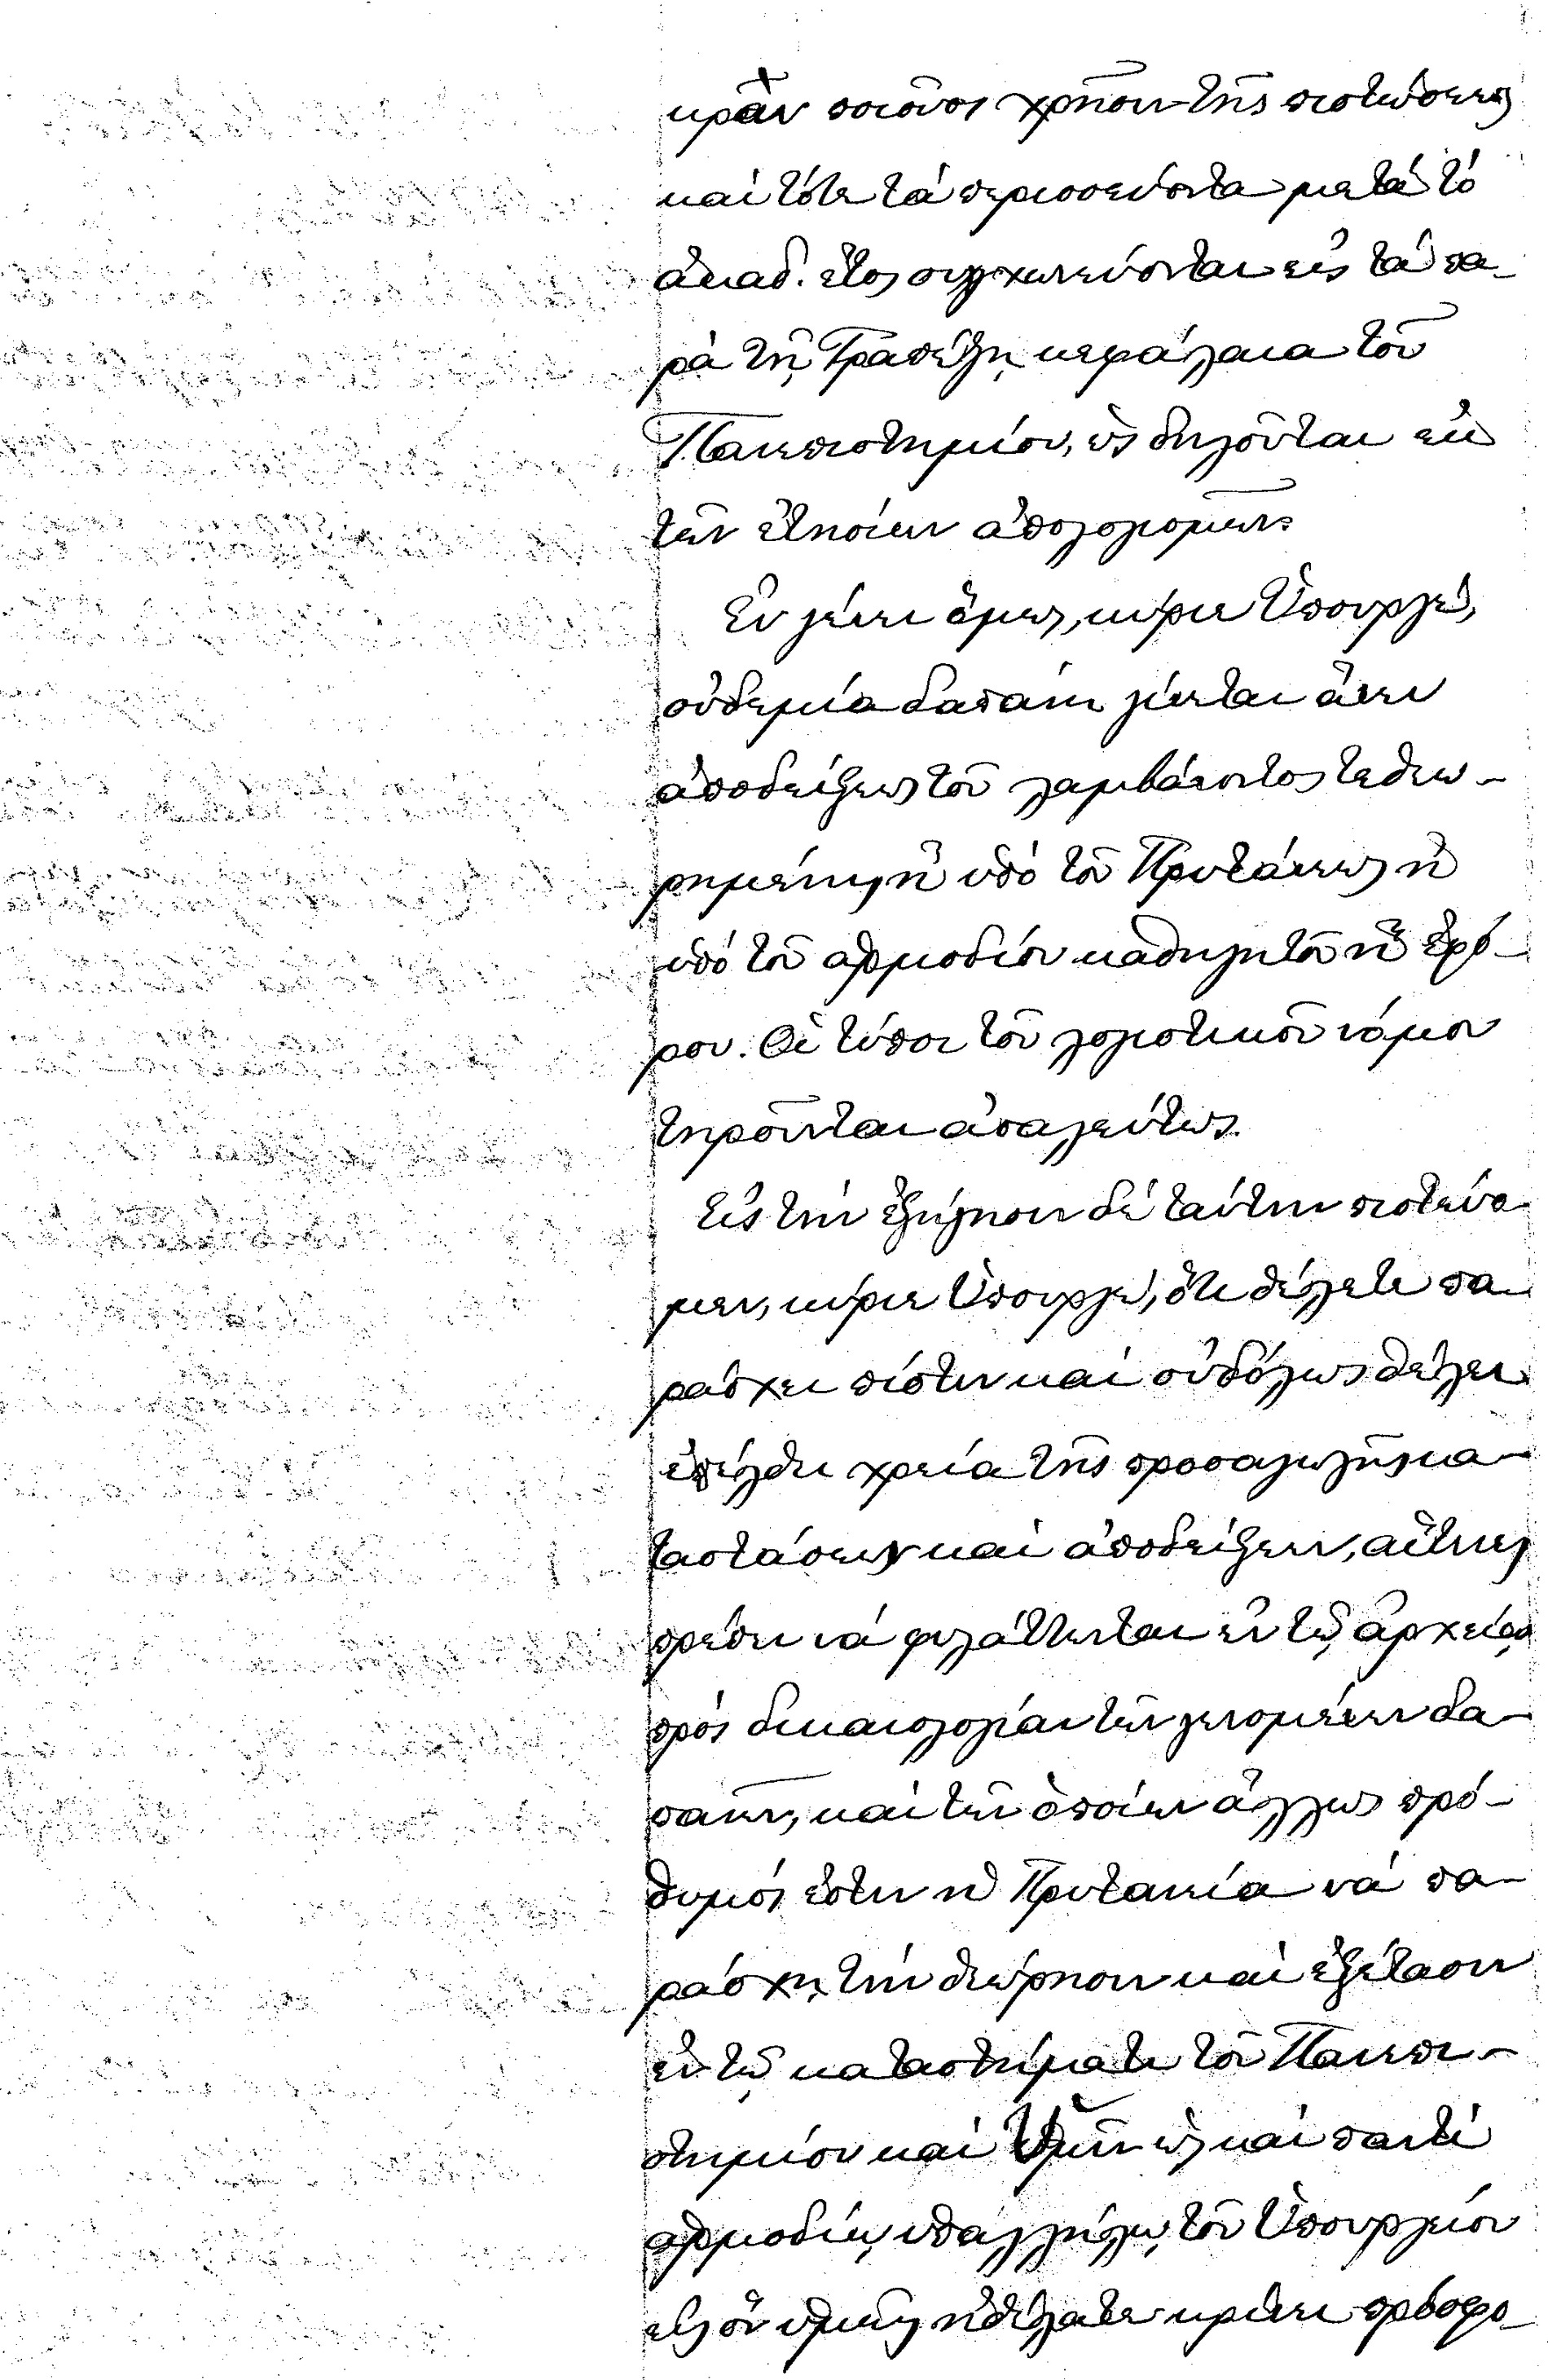 κρὰν ποιοῦσι χρῆσιν τῆς πιστώσεως
καὶ τότε τὰ περισσεύοντα μετὰ τὸ
ἀκαδ. ἔτος συγχωνεύονται εἰς τὰ πα-
ρὰ τῇ Τραπέζῃ κεφάλαια τοῦ
Πανεπιστημίου, ὡς δηλοῦται ἐκ
τῶν ἐτησίων ἀπολογισμῶν.
Ἐν γένει ὅμως, κύριε Ὑπουργέ,
οὐδεμία δαπάνη γίνεται ἄνευ
ἀποδείξεως τοῦ λαμβάνοντος τεθεω-
ρημένης ἢ ὑπὸ τοῦ Πρυτάνεως ἢ
ὑπὸ τοῦ ἁρμοδίου καθηγητοῦ ἢ ἐφό-
ρου. Οἱ τύποι τοῦ λογιστικοῦ νόμου
τηροῦνται ἀπαλεύτως.
Εἰς τὴν ἐξήγησιν δὲ ταύτην πιστεύο-
μεν, κύριε Ὑπουργέ, ὅτι θέλετε πα-
ράσχει πίστιν καὶ οὐδόλως θέλει
ἐπέλθει χρεία τῆς προσαγωγῆς κα-
ταστάσεων καὶ ἀποδείξεων, αἵτινες
πρέπει νὰ φυλάττωνται ἐν τῷ ἀρχείῳ
πρὸς δικαιολογίαν τῶν γενομένων δα-
πανῶν, καὶ τῶν ὁποίων ἄλλως πρό-
θυμός ἐστιν ἡ Πρυτανεία νὰ πα-
ράσχῃ τὴν θεώρησιν καὶ ἐξέτασιν
ἐν τῷ καταστήματι τοῦ Πανεπι-
στημίου καὶ Ὑμῖν ὡς καὶ παντὶ
ἁρμοδίῳ ὑπαλλήλῳ τοῦ Ὑπουργείου
εἰς ὃν ὑμεῖς ἠθέλατε κρίνει πρόσφο-